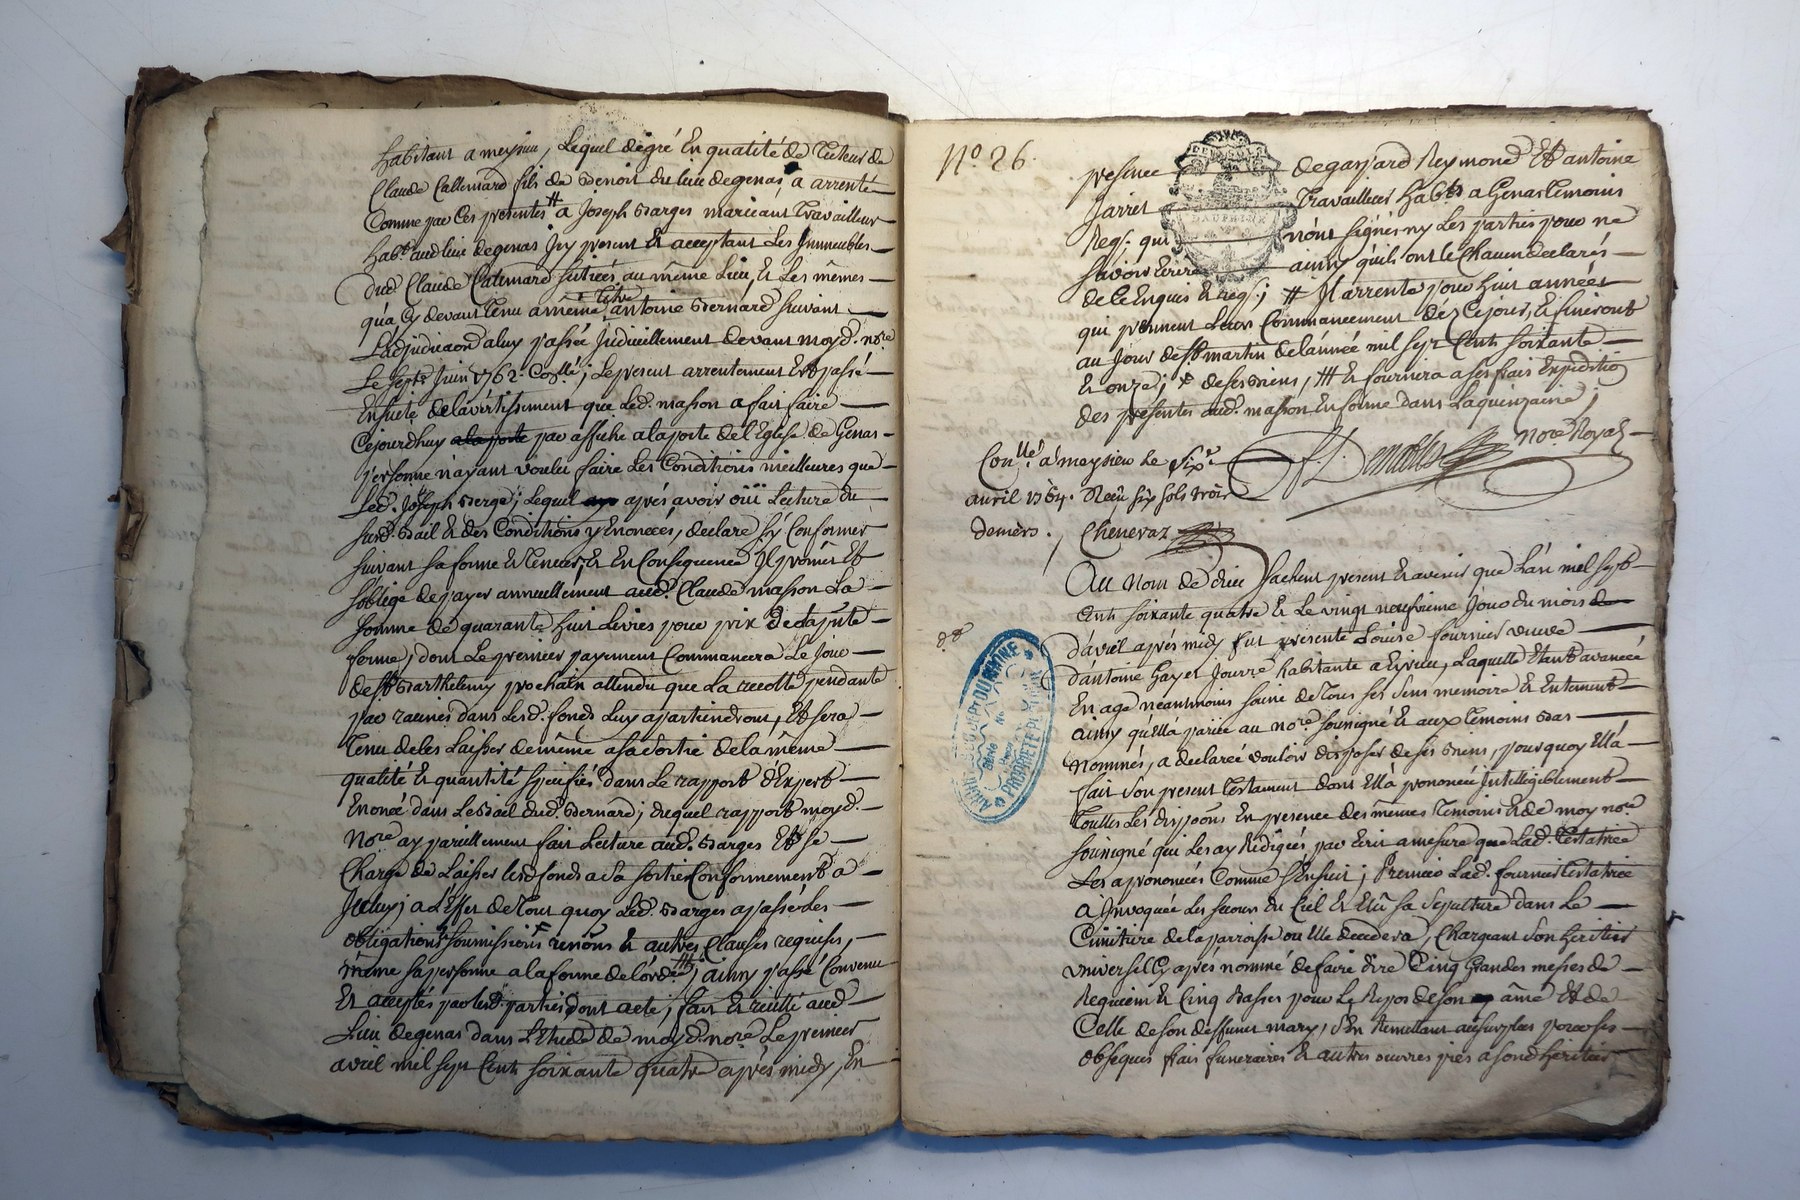 habitant a meysieu, Lequel de gré En qualité de Tuteur de
Claude Callemard fils de Benoit du lieu de genas a arrenté
Comme par Ces presentes # a Joseph Barges marieant Travailleur
habt. aud lieu de genas Icy present Et acceptant Les Immeubles
dud Claude Callemard scitués au même Lieu, Et Les mêmes
qu'a Cy devant Tenu a même titre antoine Bernard suivant
L'adjudicaon a luy passée Judiciellement devant moyd. nore
Le sept Juin 1762. Conllé; Le present arrentement Est passé
Ensuite de lavertissement que Led. masson a fait faire
Cejourdhuy a la porte par affiche a la porte de l'Eglise de Genas
personne n'ayant voulu faire des Conditions meilleures que
Led. Joseph Barge; Lequel aprés avoir oüi Lecture du
susd. Bail Et des Conditions y Enoncées, declare s'y Conformer
suivant sa forme Et Teneur, Et En Consequence Il promet Et
s'oblige de payer annuellement aud. Claude masson La
somme de quarante huit Livres pour prix de lad. sute
ferme, dont Le premier payement Commancera Le Jour
de St Barthelemy prochain attendu que La recolte pendante
par racines dans Lesd. fonds Luy apartiendront, Et sera
Tenu de les Laisser de même a sa sortie de la même
qualité Et quantité specifiés dans Le rapport d'Expert
Enoncé dans Le Bail dud. Bernard; duquel rapport moyd.
Nore ay pareillement fait Lecture aud. Barges Et se
Charge de Laisser lesd fonds a sa sortie Conformement a
Iceluy; a L'Effet de Tout quoy Led. Barges a passé Les
obligations soumissions × renons Et autres Clauses requises,
même sa personne a la forme de l'orde #; ainsy passé Convenu
Et acceptés par lesd. parties dont acte, fait Et recitté aud
Lieu de genas dans L'Etude de moyd. nore Le premier
avril mil sept Cent soixante quatre aprés midy, En
No 26.
presence de gaspard Reymond Et antoine
Jarret Travailleurs habts a Genas Temoins
Reqs. qui n'ont signés ny Les parties pour ne
sçavoir Ecrire ainsy qu'ils ont le Chacun declarés
de ce Enquis Et reqs.; # Il arrente pour huit années
qui prennent Leur Commancement déz Cejour, Et finiront
au Jour de St martin de lannée mil sept Cent soixante
Et onze; × de ses Biens, ## Et fournira a ses frais Expeditio
des présentes aud. masson En forme dans La quinzaine;
nore Royal
DAUPHINE
Conllé a meysieu Le Six
avril 1764. Reçu six sols trois
deniers. Chenevaz
Au Nom de dieu sachent present Et avenir que L'an mil sept
Cent soixante quatre Et Le vingt neufvieme Jour du mois
d'avril aprés midy fut presente Louise fournier veuve
d'antoine Gayet Jourré habitante a Eyrieu, Laquelle Etant avancée
En age néantmoins saine de Tous ses sens memoire Et Entement
ainsy qu'Ella parüe au nore soussigné Et aux Temoins Bas
Nommés, a declarée vouloir disposer de ses Biens, pourquoy Ella
fait son present Testament dont Ella prononcé Intelligiblement
Touttes Les dispoons En presence des mêmes Temoins Et de moy nore
soussigné qui Les ay Redigées par Ecrit a mesure que Lad. Testatrice
Les a prononcées Comme s'Ensuit; Premiero Lad. fournier Testatrice
a Invoquée Les secours du Ciel Et Elû sa sepulture dans Le
Cimitiere de la parroisse ou Elle decedera, Chargeant son heritier
universel Cy aprés nommé de faire dire Cinq Grandes messes de
Requiem Et Cinq Basses pour Le Repos de son âme Et de
Celle de son deffunt mary, s'En Remettant au surplus pour ses
obseques frais funeraires Et autres œuvres pies a sond heritier